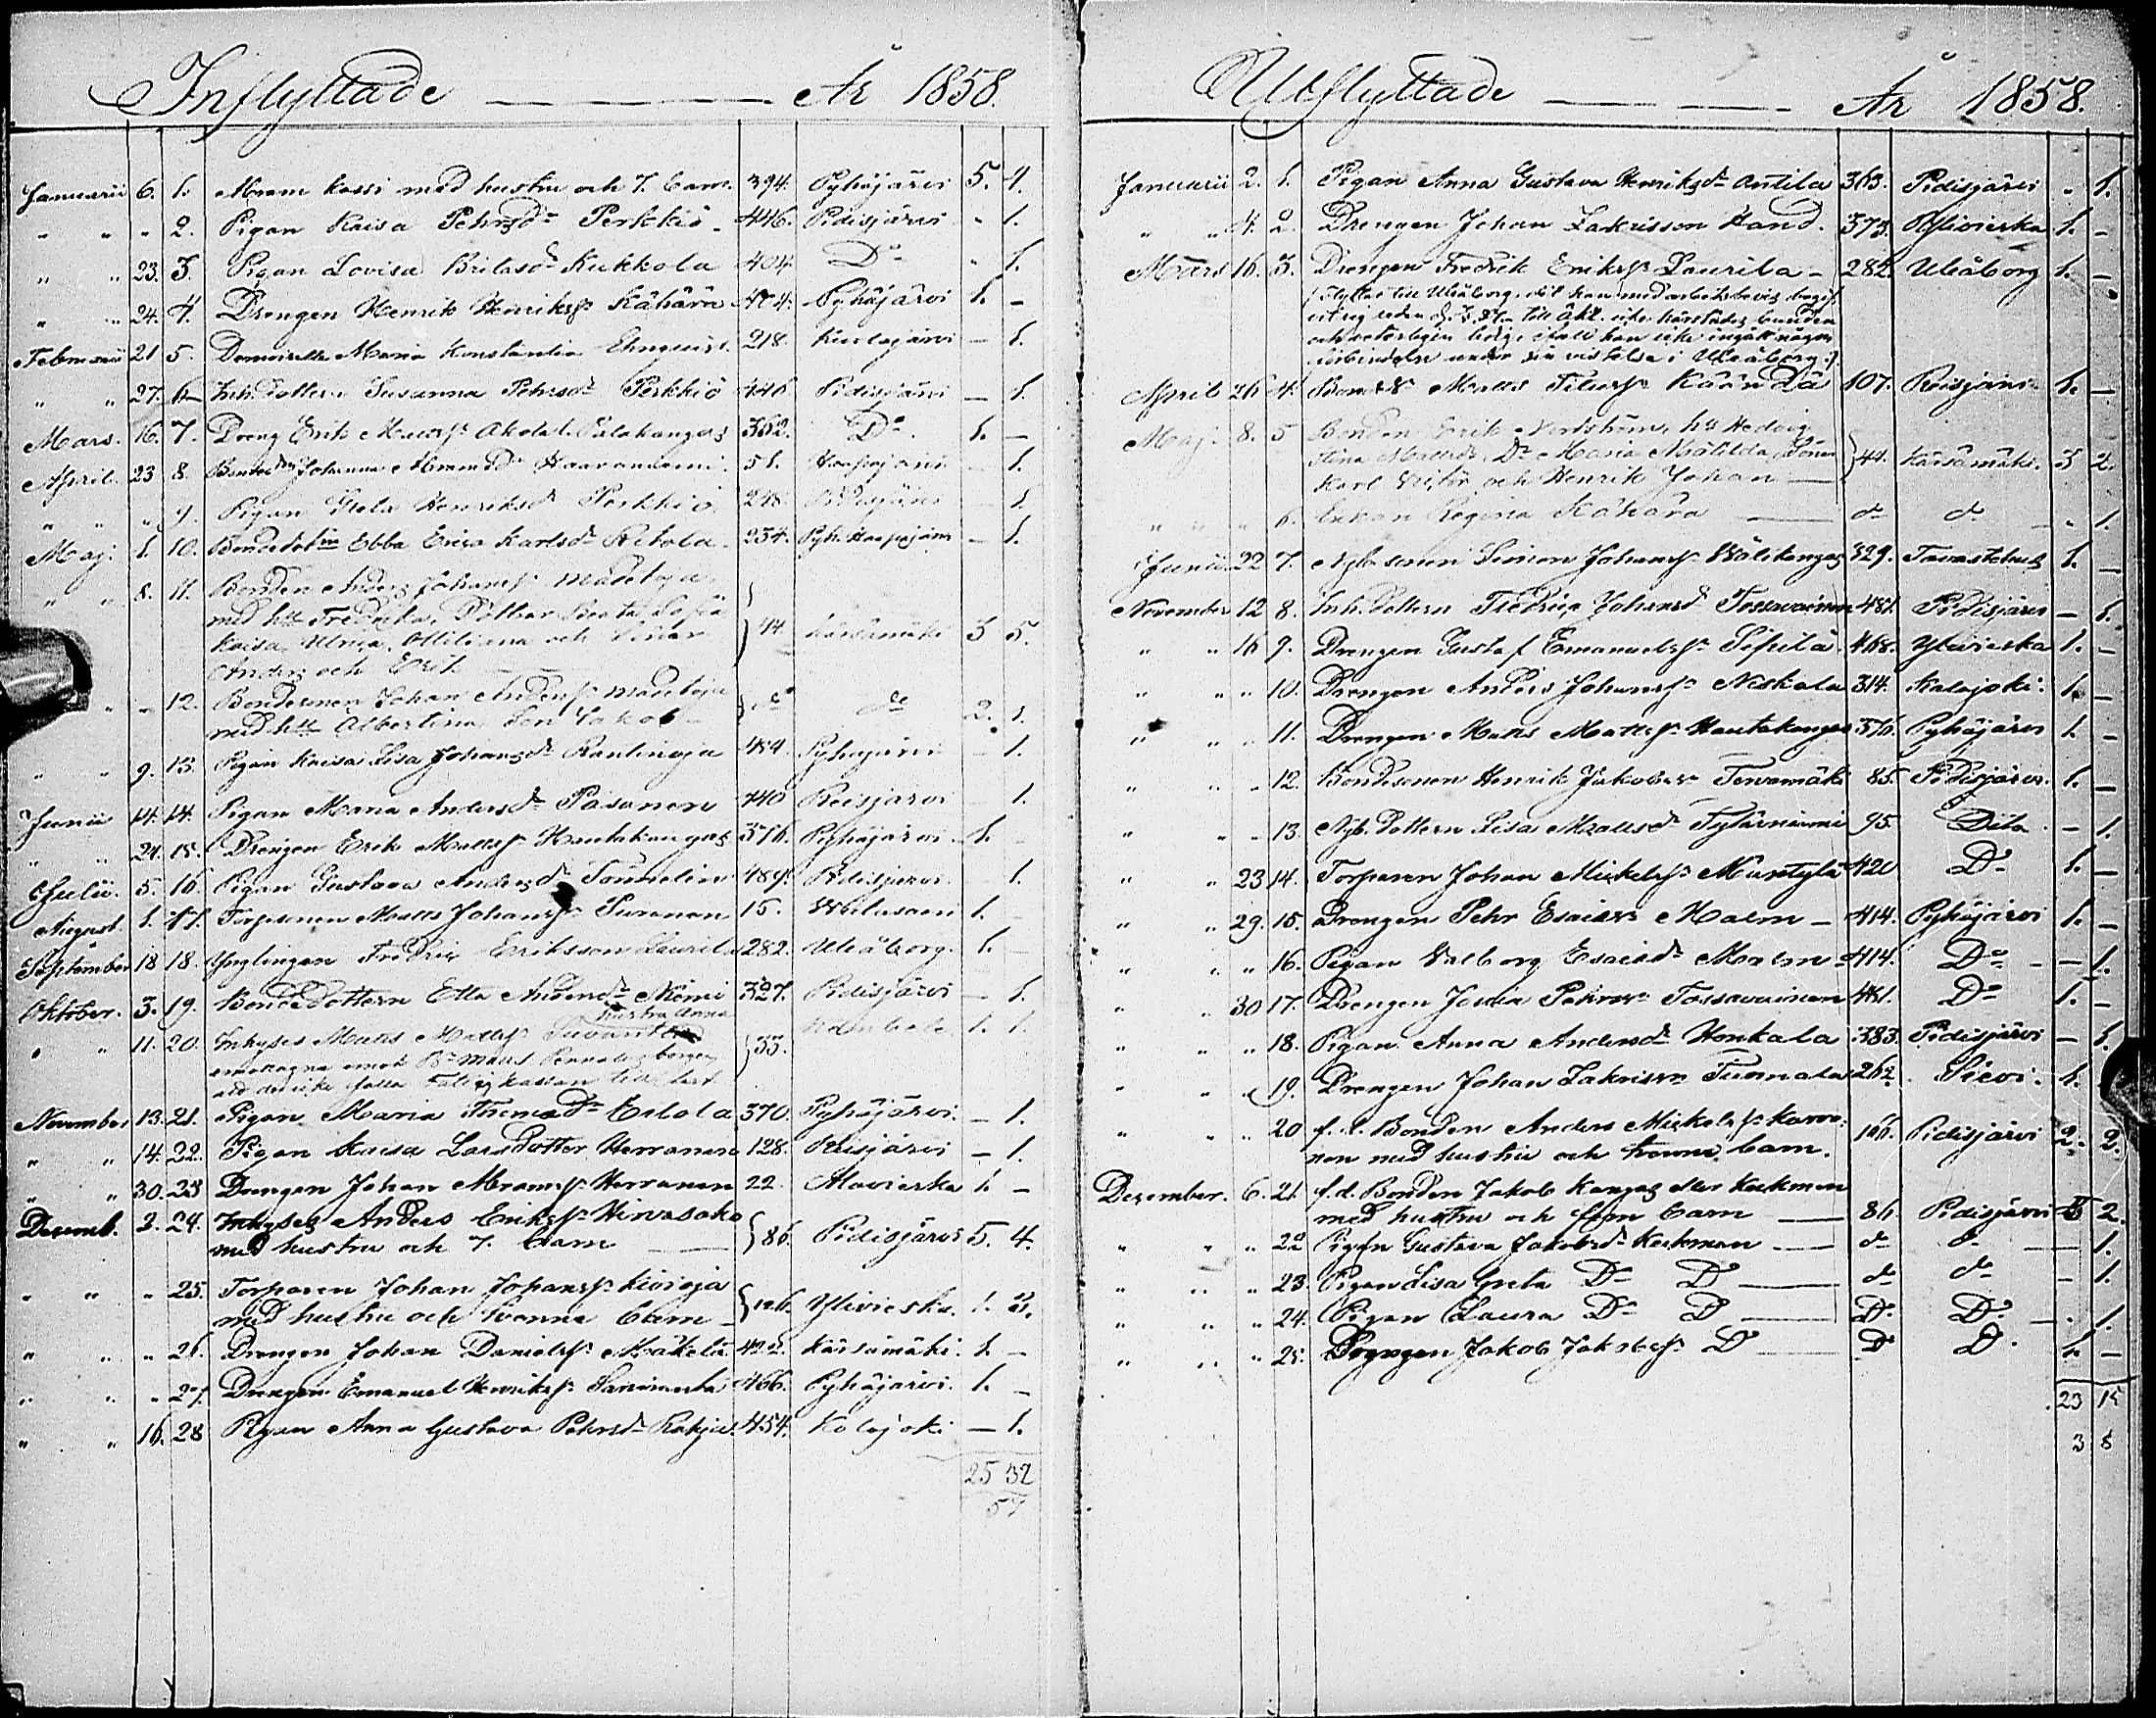 Inflyttade — År 1858.
Januarii 6. 1. Abram Kassi med hustru och 7. barn. 394. Pyhäjärvi 5. 4.
" " " 2. Pigan Kaisa Pehrsdr Perkkiö 446. Pidisjärvi - 1.
" " 23. 3. Pigan Lovisa Kukkola 404. Do - 1.
" " 24. 4. Drengen Henrik Henrikss. Kähärä 404. Pyhäjärvi 1. -
Februarii 21 5. Maria Konstantia 218. - 1.
" " 27. 6. Inh. dottern Susanna Pehrsdr Perkkiö 446 Pidisjärvi - 1.
Mars. 16. 7. Dreng Erik Matss. Akola l. Palokangas 362. Do 1. -
April. 23 8. Johanna Abramsdr Haaraniemi 51. Haapajärvi 1.
" " " 9. Pigan Henriksdr Perkkiö 248. Pidisjärvi 1.
Maj. 1. 10. Ebba Erica Karlsdr Ritola 234. Pyh. Haapajärvi - 1.
" " 8. 11. Bonden Anders Johanss. Madetoja
med hu Fredrika, Döttrar Sofia
Kaisa, Ulrica, Ottiliana och Söner 44 Kärsämäki 3 5.
Anders och Erik
" " 12. Bondesonen Johan Anderss. Madetoja
med hu Albertina, Son Jakob do do 2. 1.
" " 9. 13. Pigan Kaisa Lisa Johansdr Rantinoja 484 Pyhäjärvi - 1.
Junii 14. 14. Pigan Maria Andersdr Pasanen 440 Reisjärvi 1.
" " 24. 15. Drengen Erik Matss. Hautakangas 376. Pyhäjärvi 1.
Julii. 5. 16. Pigan Gustava Andersdr Tönnelin 489. Pidisjärvi 1.
August 1. 17. Torparen Matts Johanss. Puranen 15. Wiitasaari 1.
September 18 18. Ynglingen Fredric Eriksson Laurila 282. Uleåborg. 1. -
Oktober. 3. 19. Bondedottern Etta Andersdr Niemi 327. Pidisjärvi - 1.
hustru Anna
" " 11. 20. Inhyses Matts Matss. Suvanto 33. 1. 1.
November 13. 21. Pigan Maria Thomasdr Eskola 370. Pyhäjärvi - 1.
" " 14. 22. Pigan Kaisa Larsdotter Herranen 128. Reisjärvi - 1.
" " 30. 23 Drengen Johan Abramss. Herranen 22. Alavieska 1. -
Decemb. 2. 24. Inhyses Anders Erikss. Hirvasoko
med hustru och 7. barn 86. Pidisjärvi 5. 4.
" " " 25. Torparen Johan Johanss. Kivioja
med hustru och tvenne barn 126. Ylivieska. 1. 3.
" " " 26. Drengen Johan Danielss. Mäkelä 422. Kärsämäki. 1. -
" " " 27. Drengen Emanuel Henrikss. 466. Pyhäjärvi. 1. -
" " 16. 28 Pigan Anna Gustava Pehrsdr 454. Kalajoki - 1.
25 32
57
Utflyttade — År 1858.
Januarii 2. 1. Pigan Anna Gustava Henriksdr Antila 363. Pidisjärvi - 1.
" " 4. 2. Drengen Johan Zakrisson Hand. 373. Ylivieska 1. -
Mars 16. 3. Drengen Fredrik Erikss. Laurila 282. Uleåborg 1. -
(Flyttat till Uleåborg, dit han med arbetsbevis begif-
vit sig
ifall han icke ingått någon
förbindelse under sin vistelse i Uleåborg.)
April 26 4. Matts Kääntä 107. Reisjärvi 1. -
Maj. 8. 5 Bonden Erik Nordström, hu Hedvig
Stina Mattsdr, Dr Maria Matilda, Söner 44. Kärsämäki. 3 2.
Karl Victor och Henrik Johan
" " " 6. Enkan Regina Kähärä do do - 1.
Junii 22 7. Nyb. sonen Simon Johanss. Wälikangas 329. Tavastehus 1. -
November 12 8. Inh. dottern Fredrica Johansdr Tossavainen 481. Pidisjärvi - 1.
" " 16 9. Drengen Gustaf Emanuelss. Sipilä 468. Ylivieska 1. -
" " " 10. Drengen Anders Johanss. Niskala 314. Kalajoki 1. -
" " " 11. Drengen Matts Mattss. Hautakangas 376. Pyhäjärvi 1. -
" " " 12. Bondesonen Henrik Jakobss. Tervamäki 85. Pidisjärvi 1. -
" " " 13. Nyb. dottern Lisa Mattsdr Tytärniemi 95. Dito - 1.
" " 23 14. Torparen Johan Mickelss. Mäntylä 420 Do 1. -
" " 29. 15. Drengen Pehr Esaiass. Malm 414. Pyhäjärvi 1. -
" " " 16. Pigan Valborg Esaiædr Malm 414. Do - 1.
" " 30 17. Drengen Pehrss. Tossavainen 461. Do 1. -
" " " 18. Pigan Anna Andersdr Honkala 383. Pidisjärvi - 1.
" " " 19. Drengen Johan Zakriss. Tuomala 262. Sievi. 1. -
" " " 20 f. d. Bonden Anders Mickelss. Karvo-
nen med hustru och tvenne barn. 166. Pidisjärvi 2. 2.
December. 6. 21. f. d. Bonden Jakob Kangas eller Keckman
med hustru och fem barn 86. Pidisjärvi 5 2.
" " " 22 Pigan Gustava Jakobsdr Keckman do do - 1.
" " " 23. Pigan Lisa Greta Do Do do do - 1.
" " " 24. Pigan Laura Do Do Do Do - 1.
" " " 25. Drengen Jakob Jakobss. Do Do Do 1. -
23 15
3 8